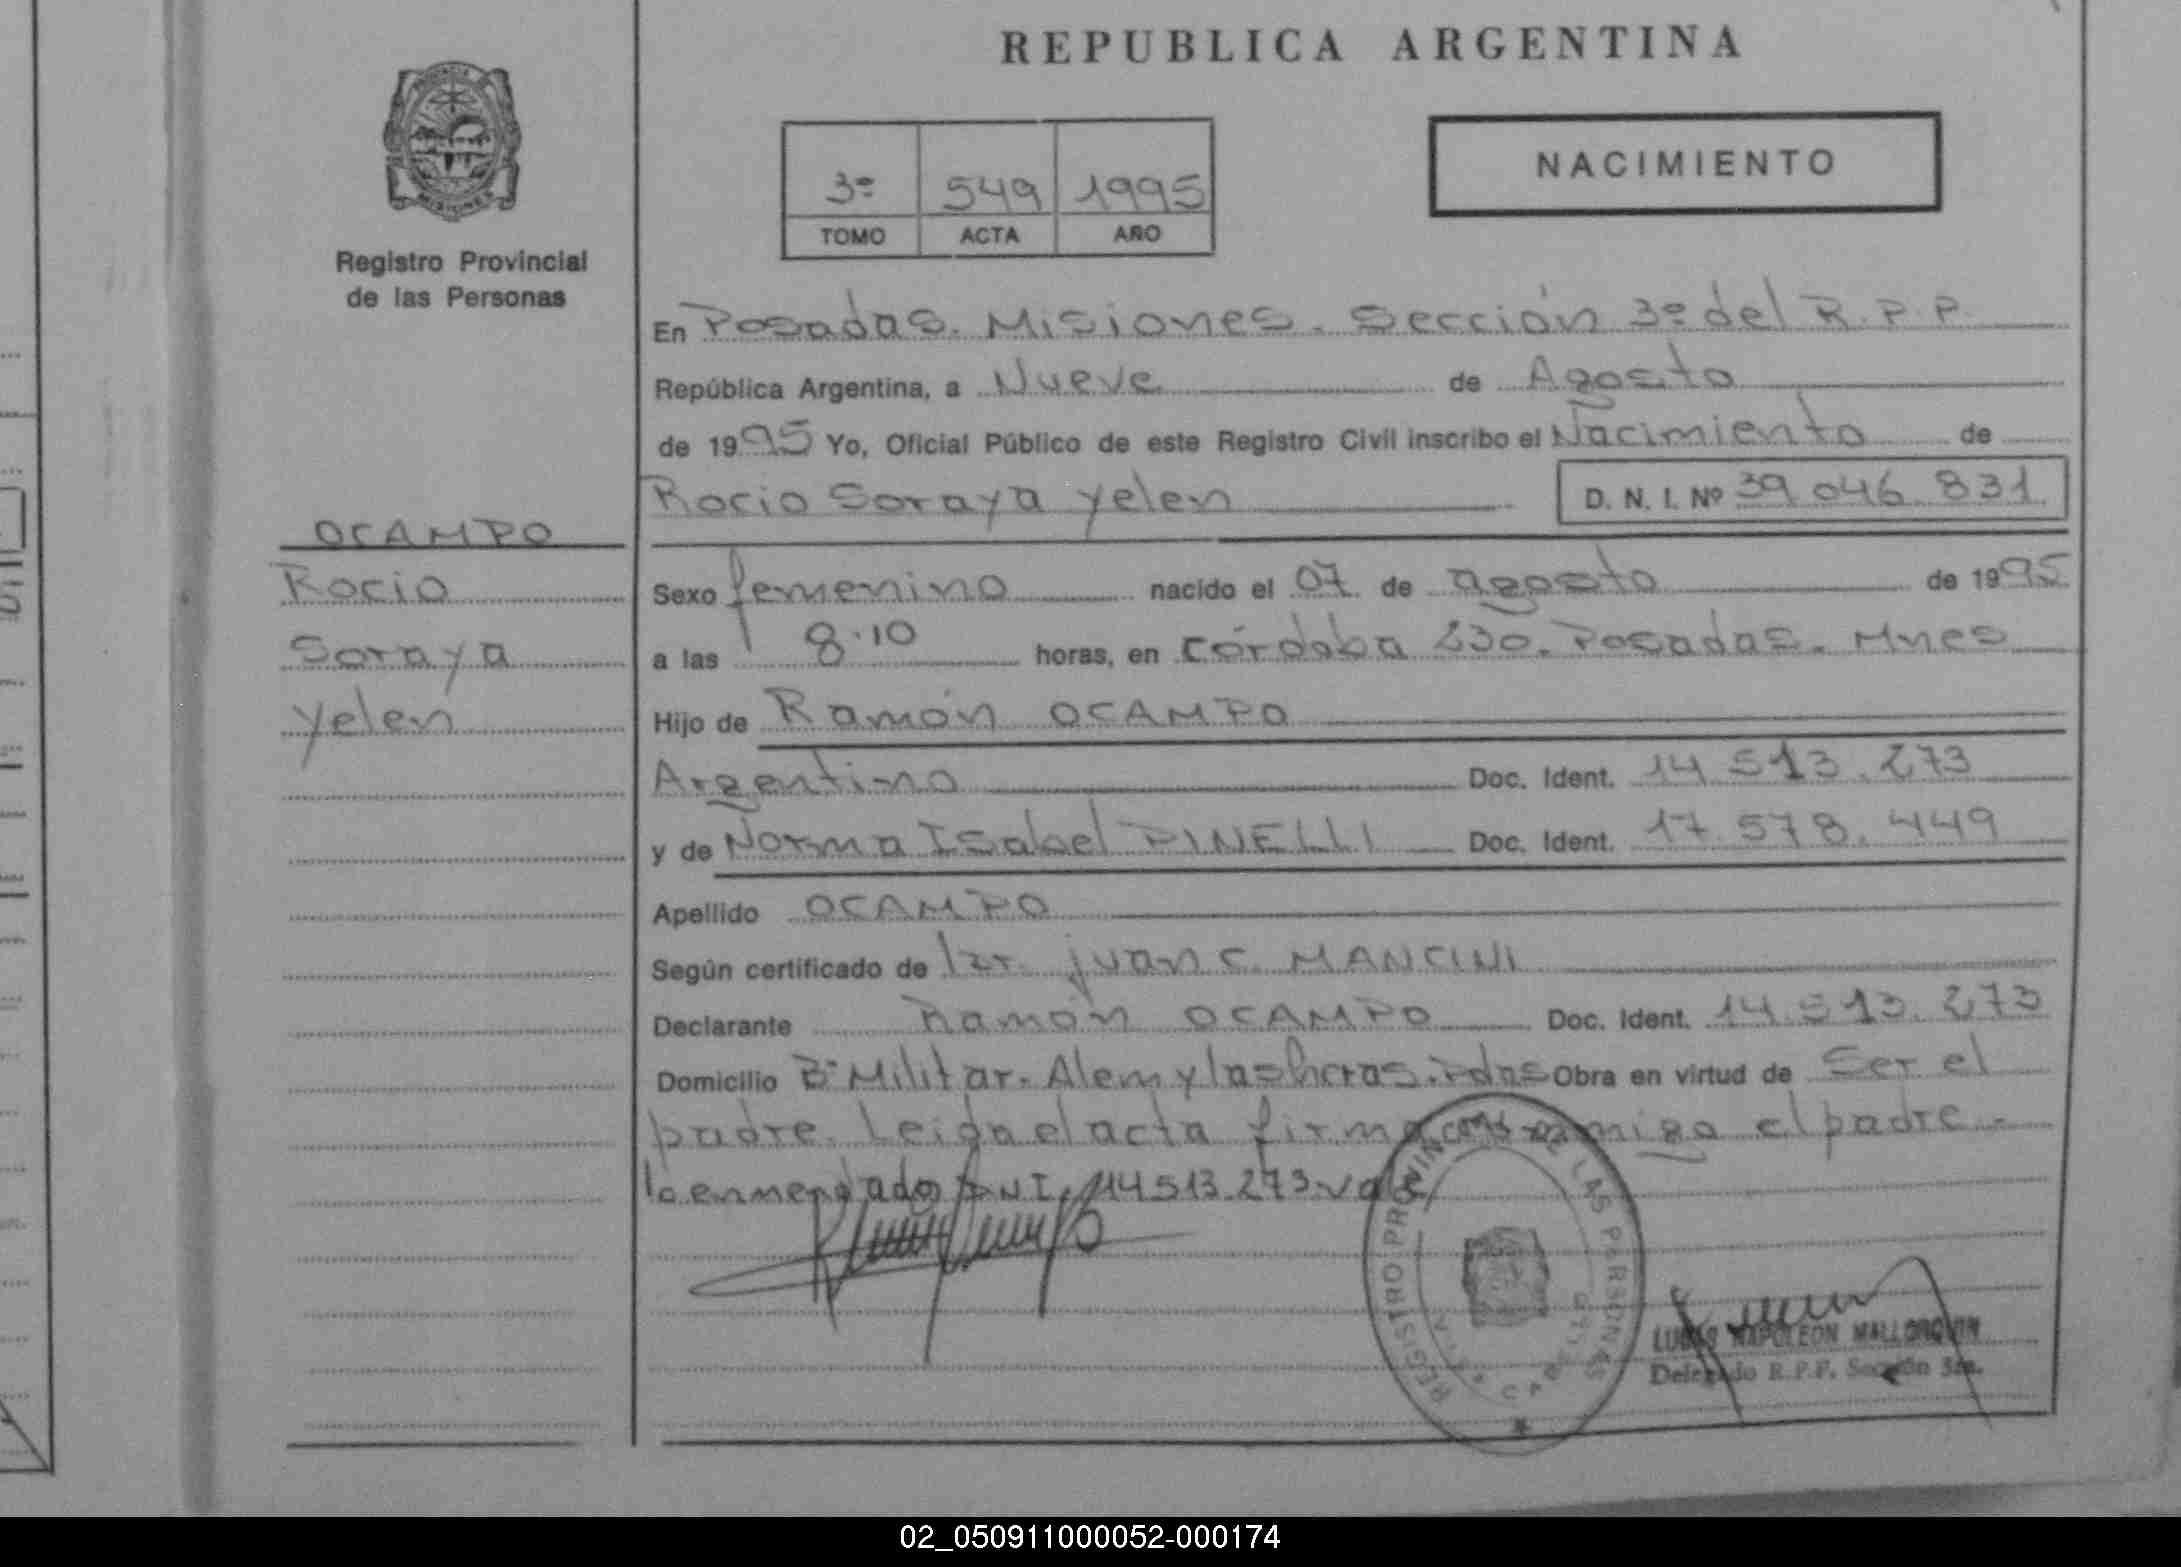 REPUBLICA ARGENTINA
PROVINCIA
MISIONES
Registro Provincial
de las Personas
3º 549 1995
TOMO ACTA AÑO
NACIMIENTO
En Posadas. Misiones. Sección 3º del R.P.P.
República Argentina, a Nueve de Agosto
de 1995 Yo, Oficial Público de este Registro Civil inscribo el Nacimiento de
Rocio Soraya Yelen D. N. I. Nº 39.046.831
OCAMPO
Rocio
Soraya
Yelen
Sexo femenino nacido el 07 de agosto de 1995
a las 8.10 horas, en Córdoba 230. Posadas. Mnes
Hijo de Ramón OCAMPO
Argentino Doc. Ident. 14.513.273
y de Norma Isabel PINELLI Doc. Ident. 17.578.449
Apellido OCAMPO
Según certificado de Juan C. MANCINI
Declarante Ramón OCAMPO Doc. Ident. 14.513.273
Domicilio Bº Militar. Alem y las heras. Pdas Obra en virtud de Ser el
padre. Leida el acta firma conmigo el padre.-
lo enmendado DNI. 14.513.273 vale
REGISTRO PROVINCIAL DE LAS PERSONAS
LUCAS NAPOLEON MALLORQUIN
Delegado R.P.P. Sección 3ra.
02_050911000052-000174